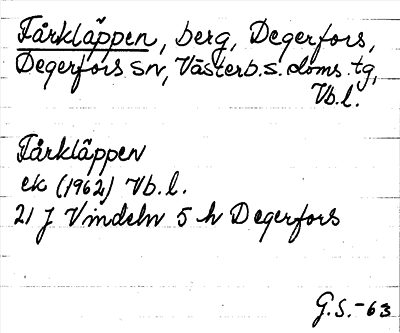 Fårkläppen, berg, Degerfors,
Degerfors sn, Västerb.s. doms. tg,
Vb.l.
Fårkläppen
ek (1962) Vb.l.
21 J Vindeln 5 h Degerfors
G.S.-63